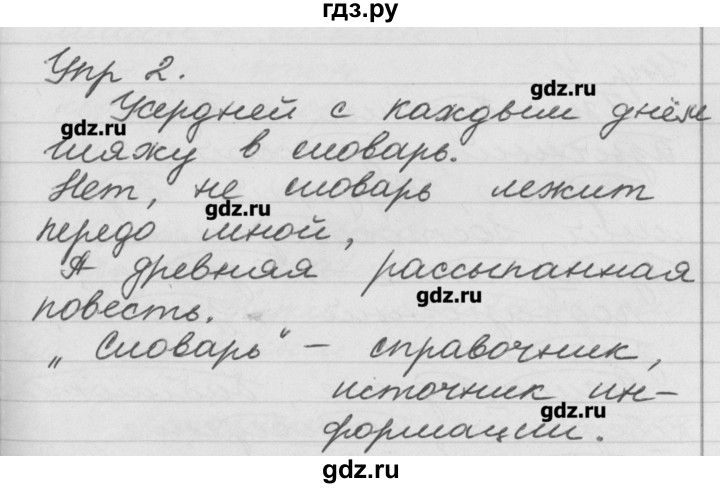 гдз.ру
Упр 2.
gdz.ru
Усердней с каждым днём
gdz.ru
гляжу в словарь.
Нет, не словарь лежит
gdz.ru
передо мной,
А древняя рассыпанная
gdz.ru
повесть.
„Словарь" – справочник,
источник ин-
gdz.ru
формации.
gdz.ru